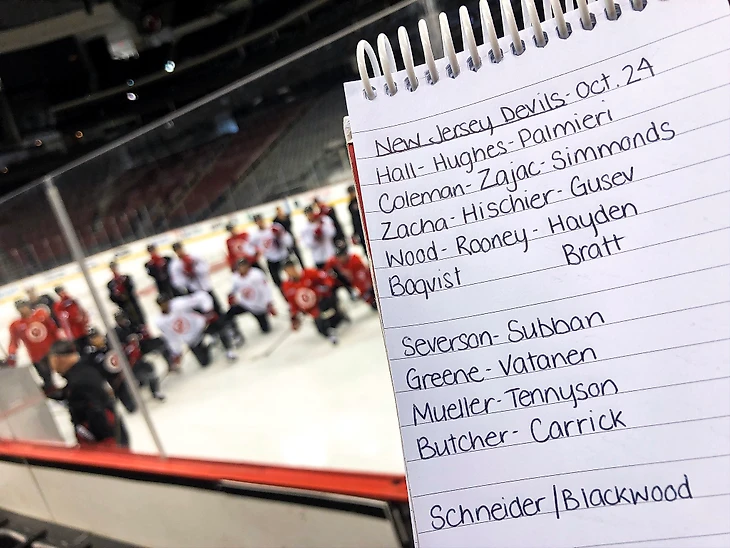 New Jersey Devils - Oct. 24
Hall - Hughes - Palmieri
Coleman - Zajac - Simmonds
Zacha - Hischier - Gusev
Wood - Rooney - Hayden
Boqvist Bratt
Severson - Subban
Greene - Vatanen
Mueller - Tennyson
Butcher - Carrick
Schneider / Blackwood